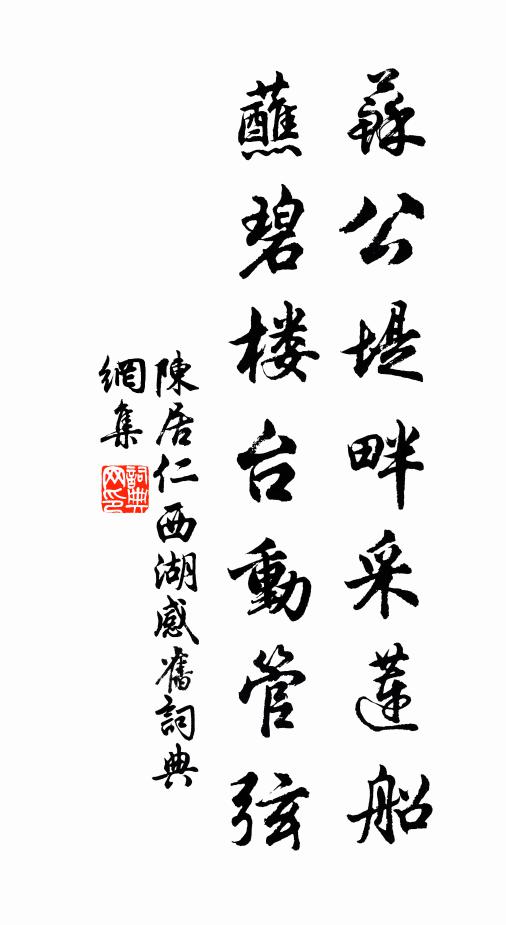 蘇公堤畔采蓮船
蘸碧楼台動管弦
陳居仁西湖感舊詞典
網集
詞典
网印